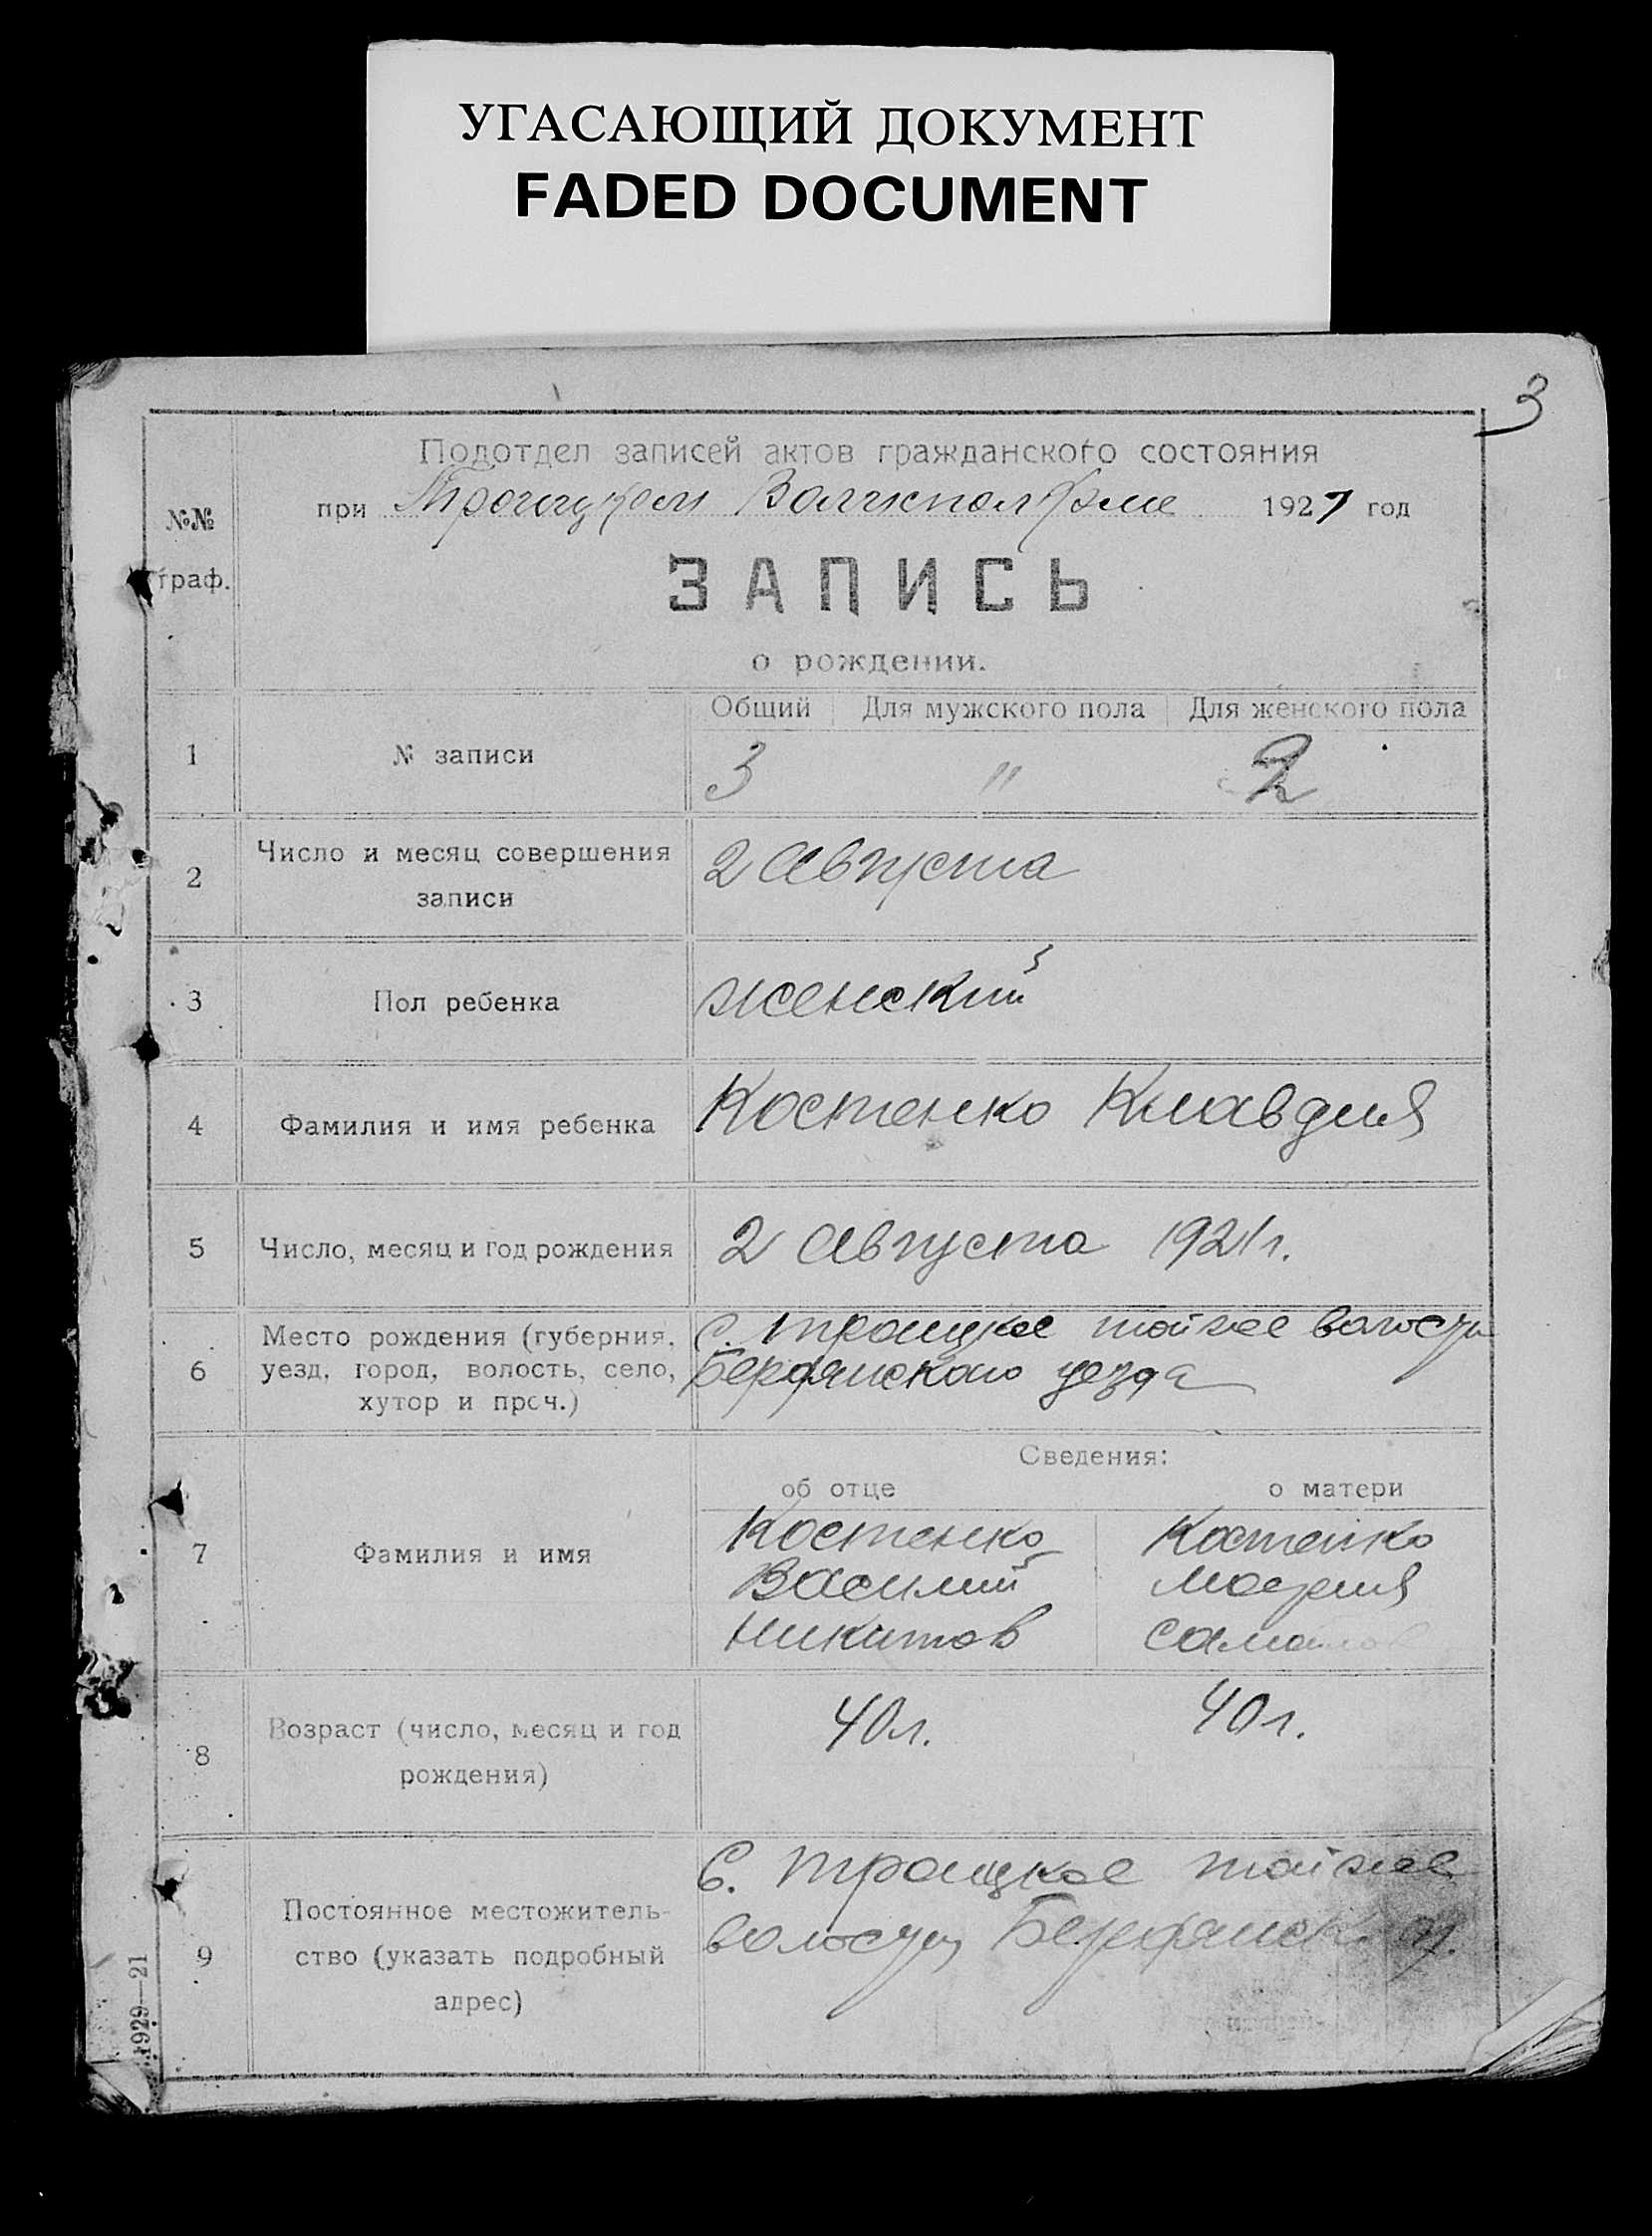 УГАСАЮЩИЙ ДОКУМЕНТ
FADED DOCUMENT
3
Подотдел записей актов гражданского состояния
при Троицком Волисполкоме 1921 год
№№ граф.
ЗАПИСЬ
о рождении.
Общий Для мужского пола Для женского пола
1 № записи 3 " 2
2 Число и месяц совершения записи 2 Августа
3 Пол ребенка женский
4 Фамилия и имя ребенка Костенко Клавдия
5 Число, месяц и год рождения 2 Августа 1921 г.
6 Место рождения (губерния, С. Троицкое той же волости
уезд, город, волость, село, Бердянского уезда
хутор и проч.)
Сведения:
об отце о матери
7 Фамилия и имя Костенко Костенко
Василий Мария
Никитов
8 Возраст (число, месяц и год рождения) 40 л. 40 л.
9 Постоянное местожитель- С. Троицкое той же
ство (указать подробный волости Бердянск. у.
адрес)
1929—21